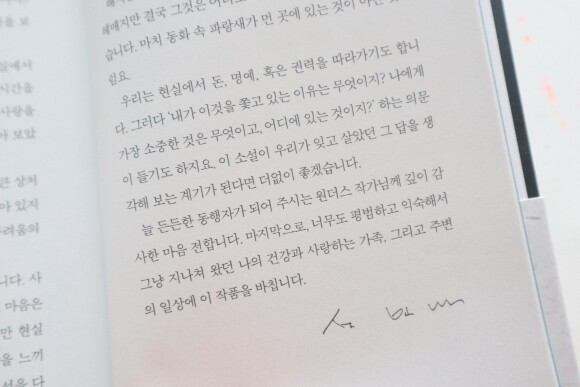 을 보
헤매지만 결국 그것은
습니다. 마치 동화 속 파랑새가 먼 곳에 있는 것이
쉽요.
우리는 현실에서 돈, 명예, 혹은 권력을 따라가기도 합니
다. 그러다 '내가 이것을 쫓고 있는 이유는 무엇이지? 나에게
가장 소중한 것은 무엇이고, 어디에 있는 것이지?' 하는 의문
이 들기도 하지요. 이 소설이 우리가 잊고 살았던 그 답을 생
각해 보는 계기가 된다면 더없이 좋겠습니다.
늘 든든한 동행자가 되어 주시는 원더스 작가님께 깊이 감
사한 마음 전합니다. 마지막으로, 너무도 평범하고 익숙해서
그냥 지나쳐 왔던 나의 건강과 사랑하는 가족, 그리고 주변
의 일상에 이 작품을 바칩니다.
시간을
사랑을
아 보았
큰 상처
아 있지
려움의
니다. 사
마음은
만 현실
을 느끼
선을 다